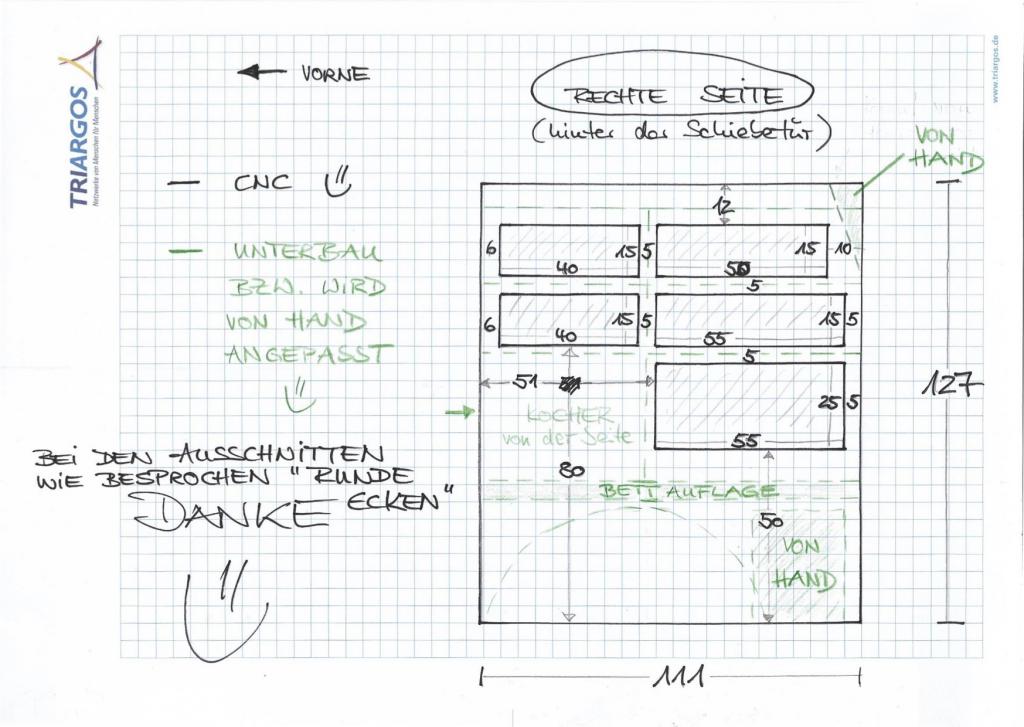 TRIARGOS
Netzwerke von Menschen für Menschen
www.triargos.de
← VORNE
RECHTE SEITE
(hinter der Schiebetür)
VON
HAND
— CNC
— UNTERBAU
BZW. WIRD
VON HAND
ANGEPASST
BEI DEN AUSSCHNITTEN
WIE BESPROCHEN "RUNDE
ECKEN"
DANKE
12
6 40 15 5 50 15 10
5
6 40 15 5 55 15 5
5
51
55 25 5
KOCHER
von der Seite
80
BETTAUFLAGE
50
VON
HAND
127
111